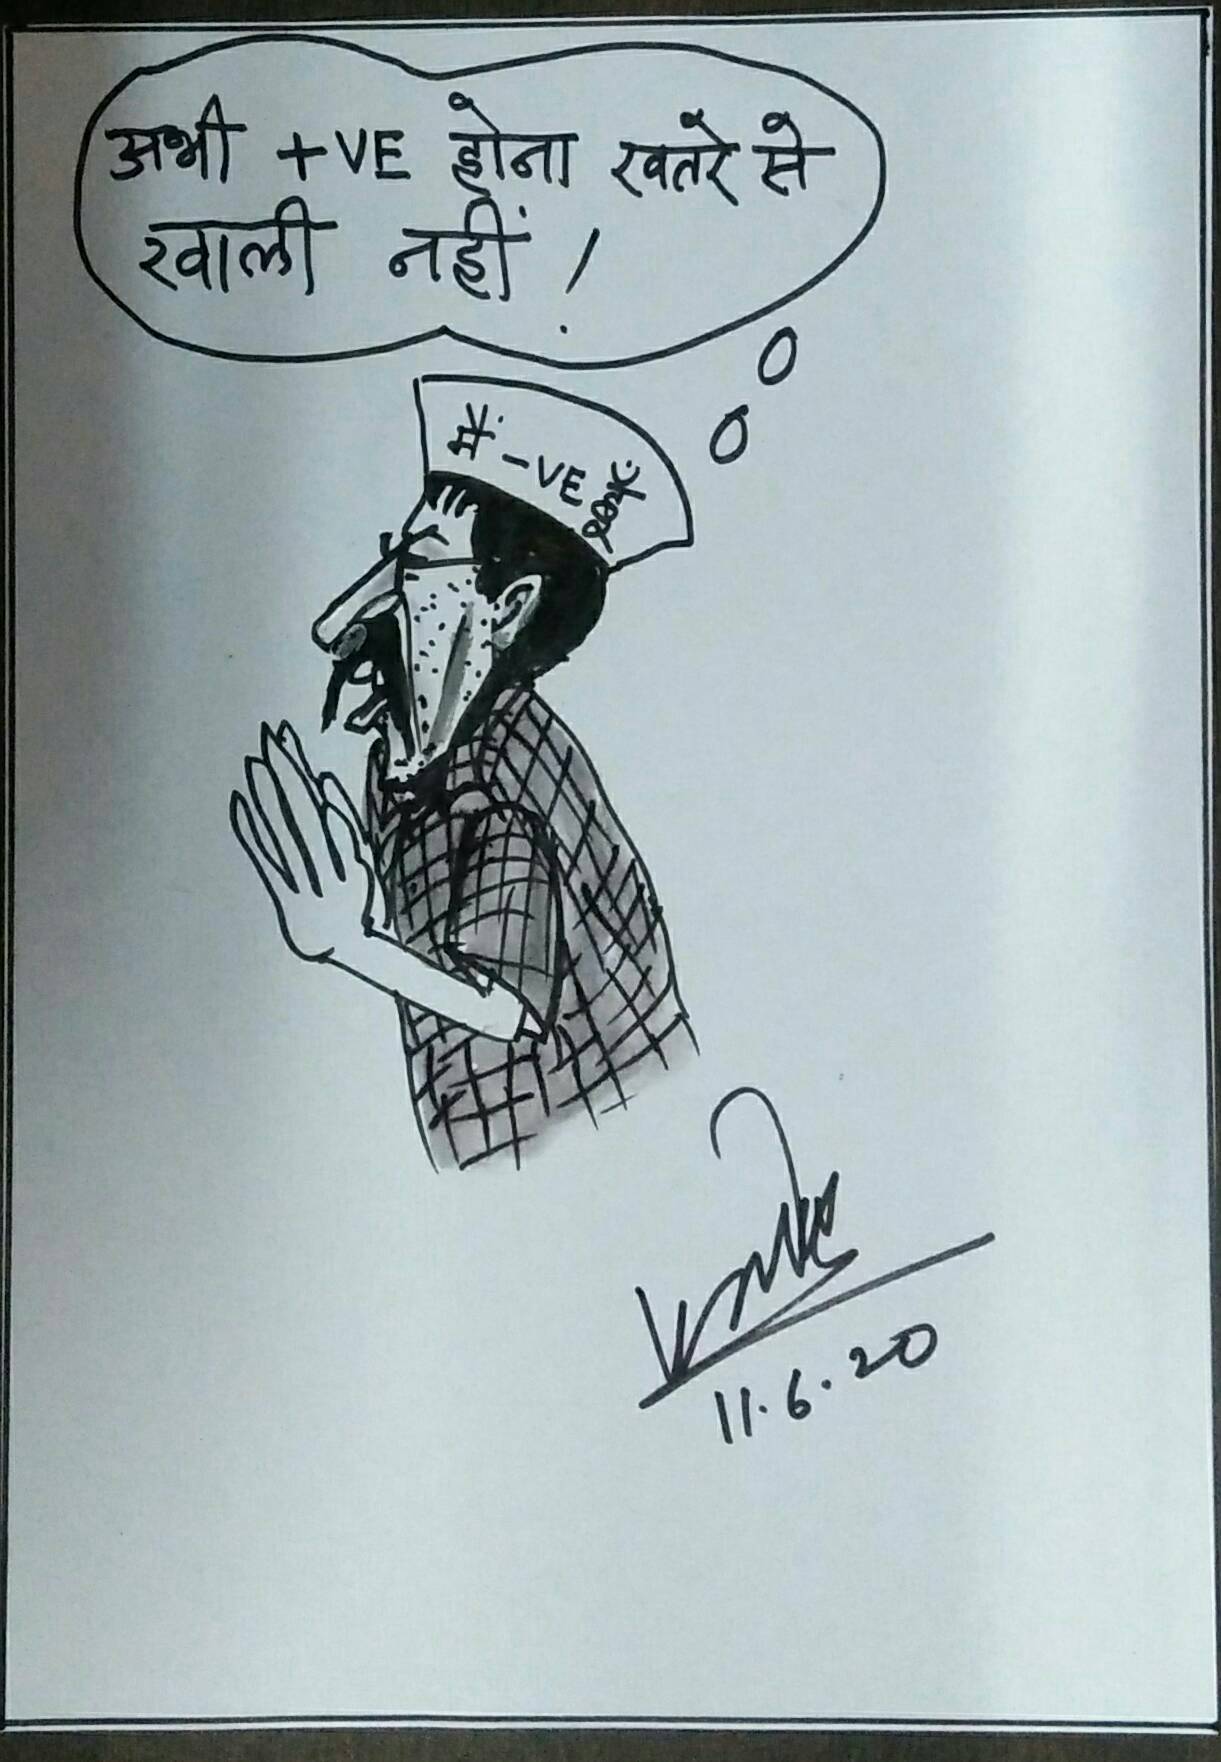 अभी +VE होना खतरे से
खाली नहीं !
मैं -VE हूँ
11.6.20